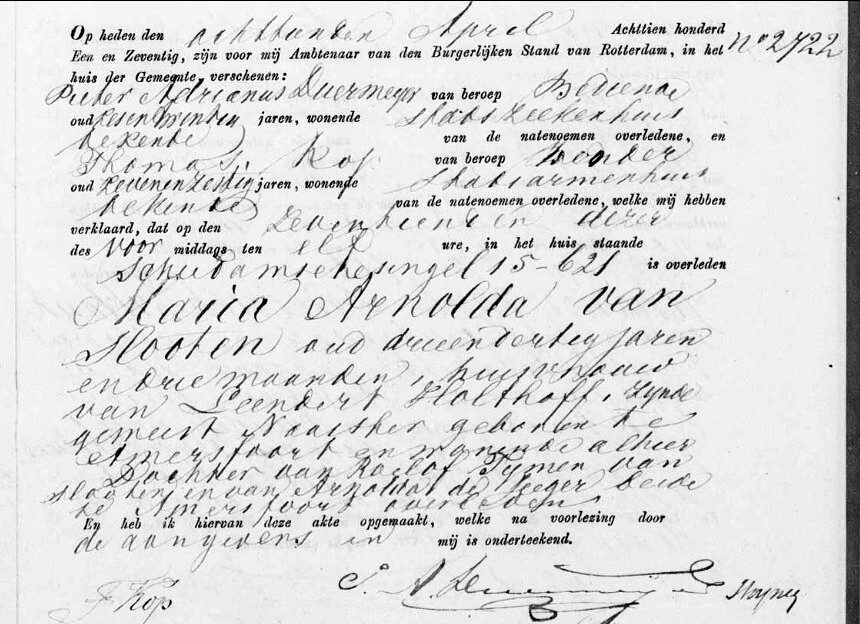 Op heden den achttienden April Achttien honderd
Een en Zeventig, zijn voor mij Ambtenaar van den Burgerlijken Stand van Rotterdam, in het No 2722
huis der Gemeente, verschenen:
Pieter Adrianus van beroep Bediende
oud zesentwintig jaren, wonende Stads Ziekenhuis
bekende van de natenoemen overledene, en
Thomas Kop van beroep
oud zevenenzestig jaren, wonende Stadsarmenhuis
bekende van de natenoemen overledene, welke mij hebben
verklaard, dat op den Zeventienden dezer
des voor middags ten elf ure, in het huis staande
Schiedamschesingel 15-621 is overleden
Maria Arnolda van
Slooten oud drieendertig jaren
en drie maanden, huisvrouw
van Leendert Holthoff, zynde
geweest Naaister geboren te
Amersfoort en wonende alhier
Dochter van Roelof Tymen van
Slooten en van Arnolda de Reger beide
te Amersfoort overleden
En heb ik hiervan deze akte opgemaakt, welke na voorlezing door
de aangevers en mij is onderteekend.
Kop P. A.